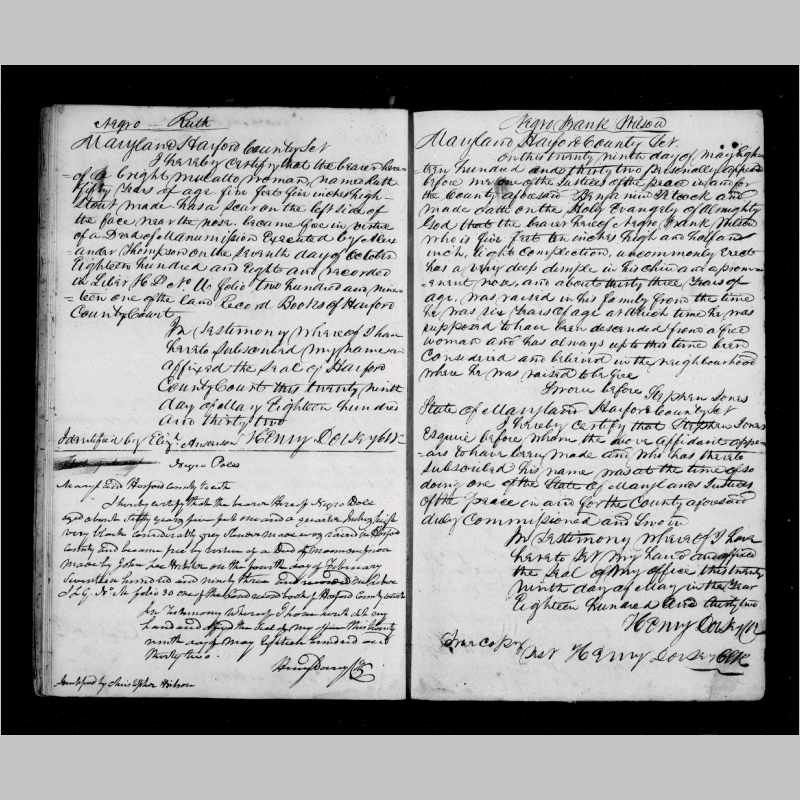 Negro Ruth
Maryland Harford County Sct
I hereby certify that the bearer here-
-of a bright mulatto woman, named Ruth
fifty years of age five feet five inches high
Stout made has a scar on the left side of
the face near the nose. became free in virtue
of a Deed of Manumission Executed by Alex-
ander Thompson on the seventh day of October
Eighteen hundred and Eight and recorded
in Liber H D No folio two hundred and nine-
-teen one of the Land Record Books of Harford
County Court
In Testimony whereof I have
hereto subscribed my name and
affixed the seal of Harford
County Court this twenty ninth
day of May Eighteen hundred
and thirty two
Identified by Eliz. Anderson Henry Dorsey Clk
Negro
Maryland Harford County to wit
I hereby certify that the bearer hereof Negro
aged about sixty years five feet one and a quarter Inches high
very black considerably grey raised in Harford
County and became free by virtue of a Deed of Manumission
made by John Lee Webster on the fourth day of February
Seventeen hundred and ninety three and recorded in Liber
J L G No folio 30 one of the Land record books of Harford County Court
In Testimony whereof I have hereto set my
hand and affixed the seal of my office this twenty
ninth day of May Eighteen hundred and
thirty two.
Henry Dorsey Clk
Identified by Christopher Wilson
Negro Frank Wilson
Maryland Harford County Sct.
On this twenty ninth day of May Eigh-
-teen hundred and thirty two personally appeared
before me one of the Justices of the peace in and for
the County aforesaid Benjamin and
made oath on the Holy Evangely of Almighty
God that the bearer hereof Negro Frank Wilson
who is five feet ten inches high and half an
inch, light complection, uncommonly erect
has a very deep dimple in his chin and a prom-
-enent nose, and about thirty three years of
age, was raised in his family from the time
he was six years of age at which time he was
supposed to have been descended from a free
woman and has always up to this time been
considered and believed in the neighbourhood
where he was raised to be free
Sworn before Stephen Jones
State of Maryland Harford County Sct
I hereby certify that Stephen Jones
Esquire before whom the above affidavit appe-
-ars to have been made and who has thereto
subscribed his name was at the time of so
doing one of the State of Maryland Justices
of the peace in and for the County aforesaid
duly Commissioned and Sworn
In Testimony whereof I have
hereto set my hand and affixed
the seal of my office this twenty
ninth day of May in the year
Eighteen hundred and thirty two
Henry Dorsey Clk
True copy
Test Henry Dorsey Clk